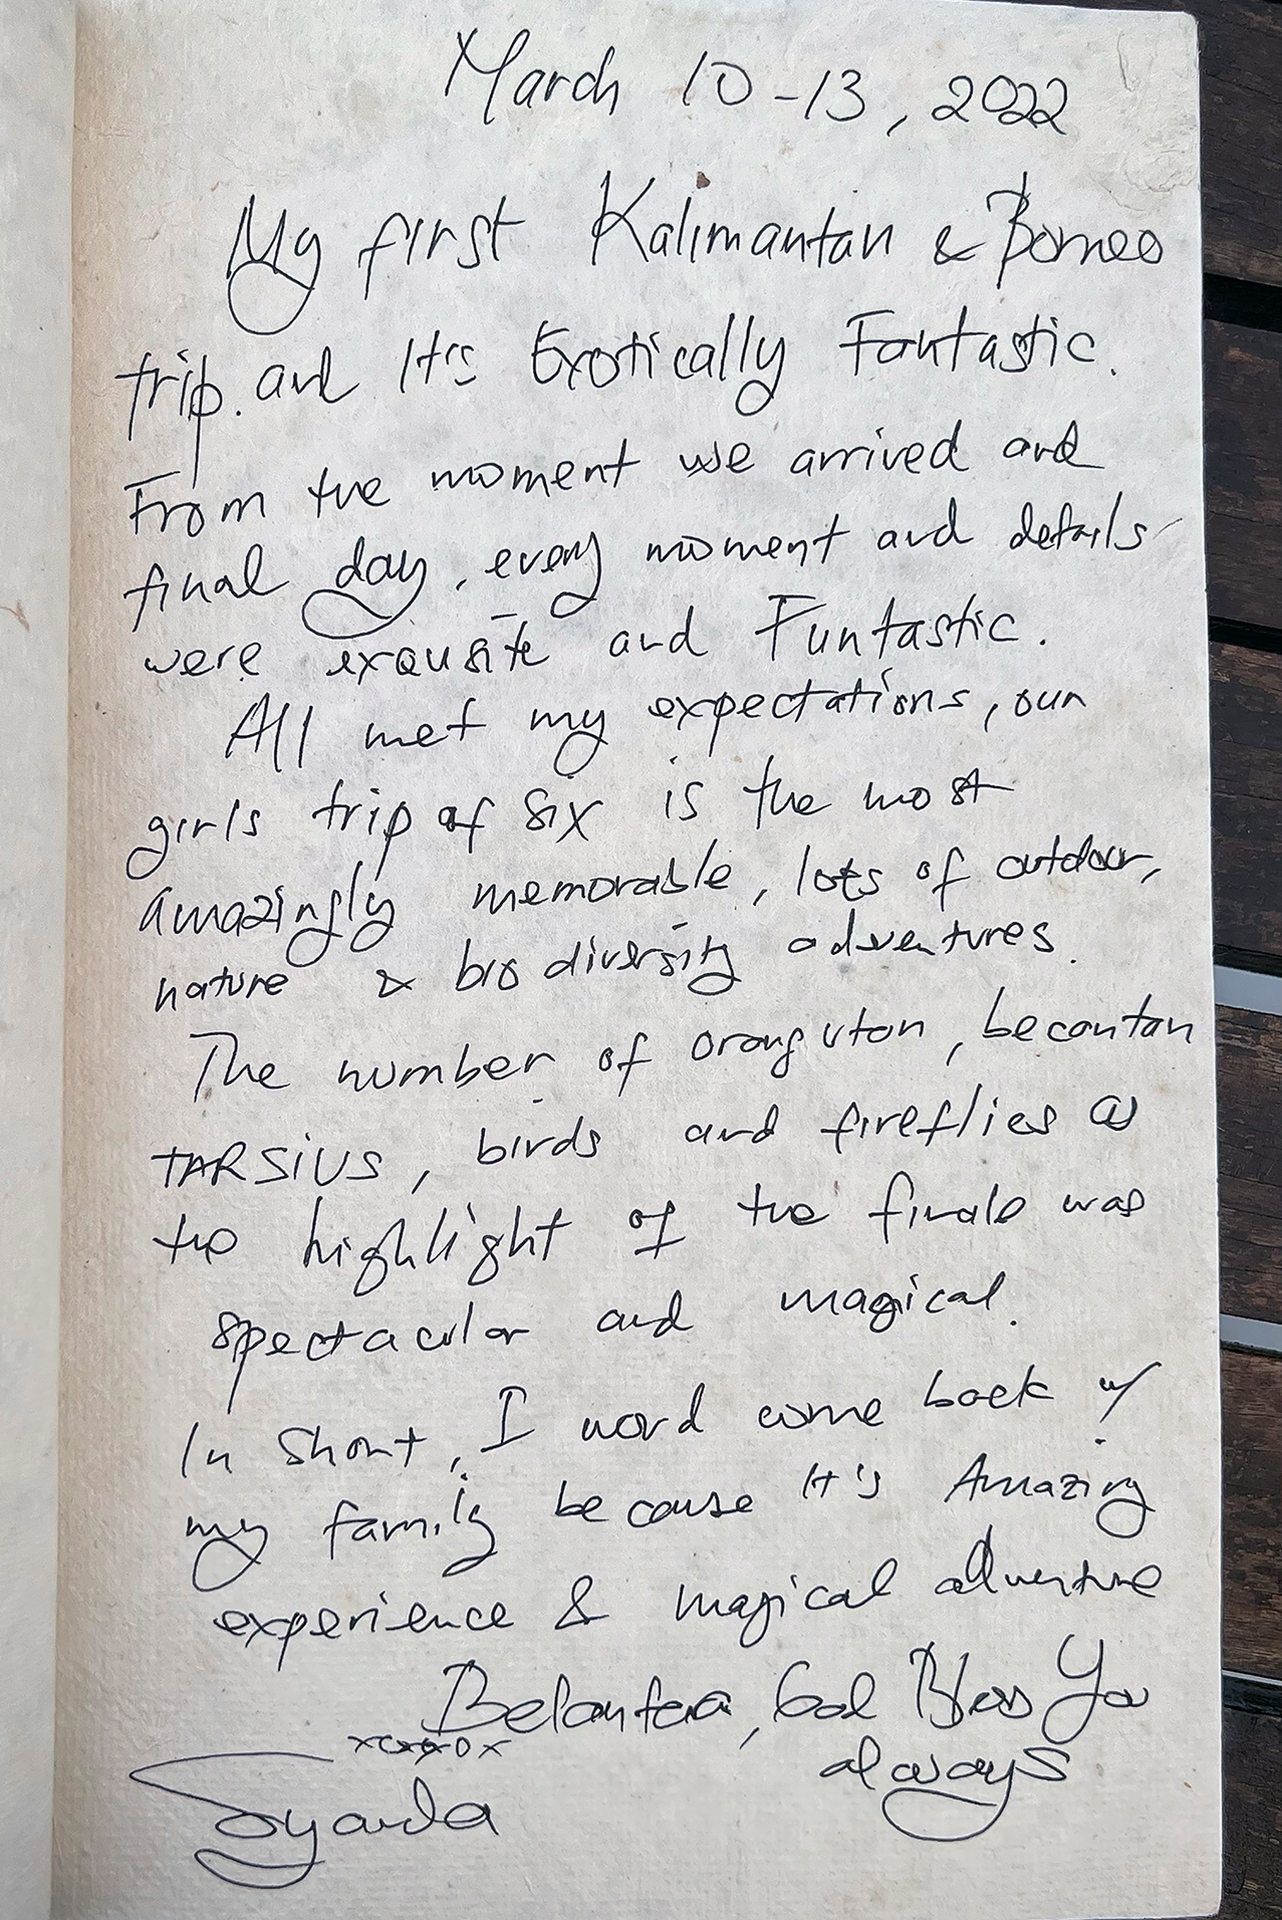 March 10-13, 2022
My first Kalimantan & Borneo
trip. and It's Exotically Fantastic.
From the moment we arrived and
final day, every moment and details
were exqusite and Funtastic.
All met my expectations, our
girls trip of six is the most
amazingly memorable, lots of outdoor,
nature & biodiversity adventures.
The number of orang utan, becantan
TARSIUS, birds and fireflies as
the highlight of the finale was
spectacular and magical.
In short, I word come back w/
my family because It's Amazing
experience & magical adventure
Belantara, God Bless You
always
Syanda